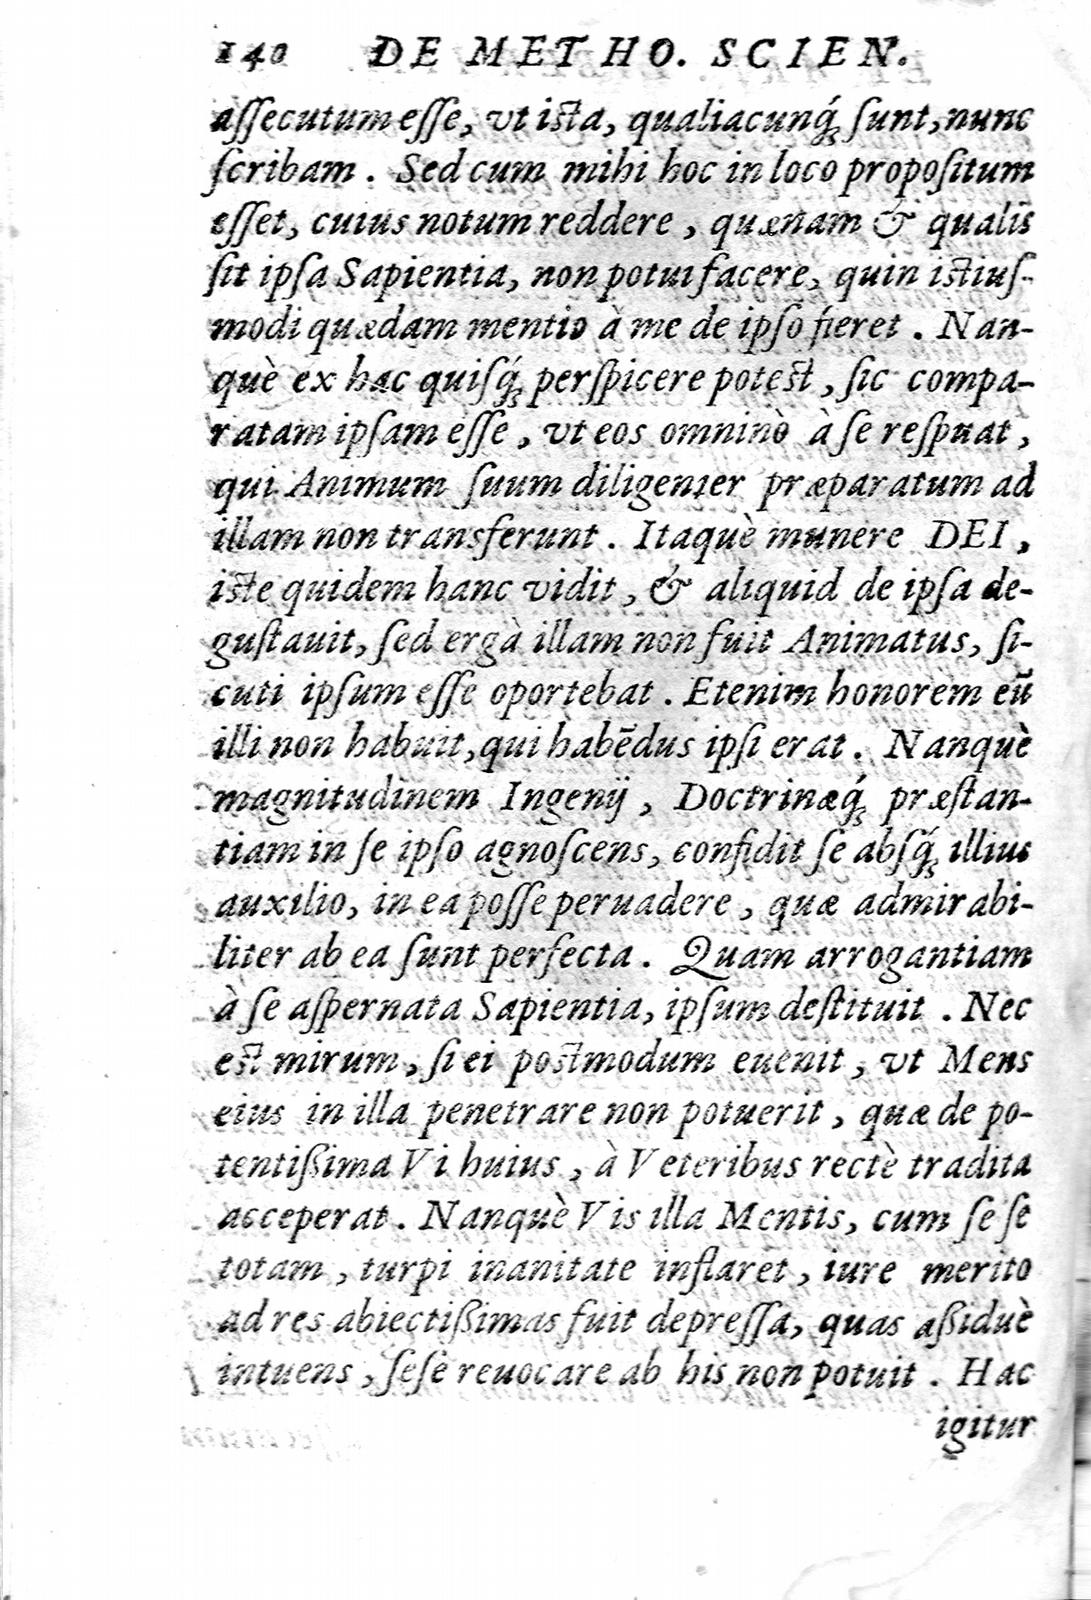 140 DE METHO. SCIEN.
aſſecutum eſſe, vt iſta, qualiacunq́; ſunt, nunc
ſcribam. Sed cum mihi hoc in loco propoſitum
eſſet, cuius notum reddere, quænam & qualis
ſit ipſa Sapientia, non potui facere, quin iſtiuſ-
modi quædam mentio à me de ipſo fieret. Nan-
què ex hac quiſq́; perſpicere poteſt, ſic compa-
ratam ipſam eſſe, vt eos omninò à ſe reſpuat,
qui Animum ſuum diligenter præparatum ad
illam non transferunt. Itaquè munere DEI,
iſte quidem hanc vidit, & aliquid de ipſa de-
guſtauit, ſed ergà illam non fuit Animatus, ſi-
cuti ipſum eſſe oportebat. Etenim honorem eū
illi non habuit, qui habēdus ipſi erat. Nanquè
magnitudinem Ingenij, Doctrinæq́; præſtan-
tiam in ſe ipſo agnoſcens, confidit ſe abſq́; illius
auxilio, in ea poſſe peruadere, quæ admirabi-
liter ab ea ſunt perfecta. Quam arrogantiam
à ſe aſpernata Sapientia, ipſum deſtituit. Nec
eſt mirum, ſi ei poſtmodum euenit, vt Mens
eius in illa penetrare non potuerit, quæ de po-
tentiſsima Vi huius, à Veteribus rectè tradita
acceperat. Nanquè Vis illa Mentis, cum ſe ſe
totam, turpi inanitate inflaret, iure merito
ad res abiectiſsimas fuit depreſſa, quas aſsiduè
intuens, ſeſe reuocare ab his non potuit. Hac
igitur